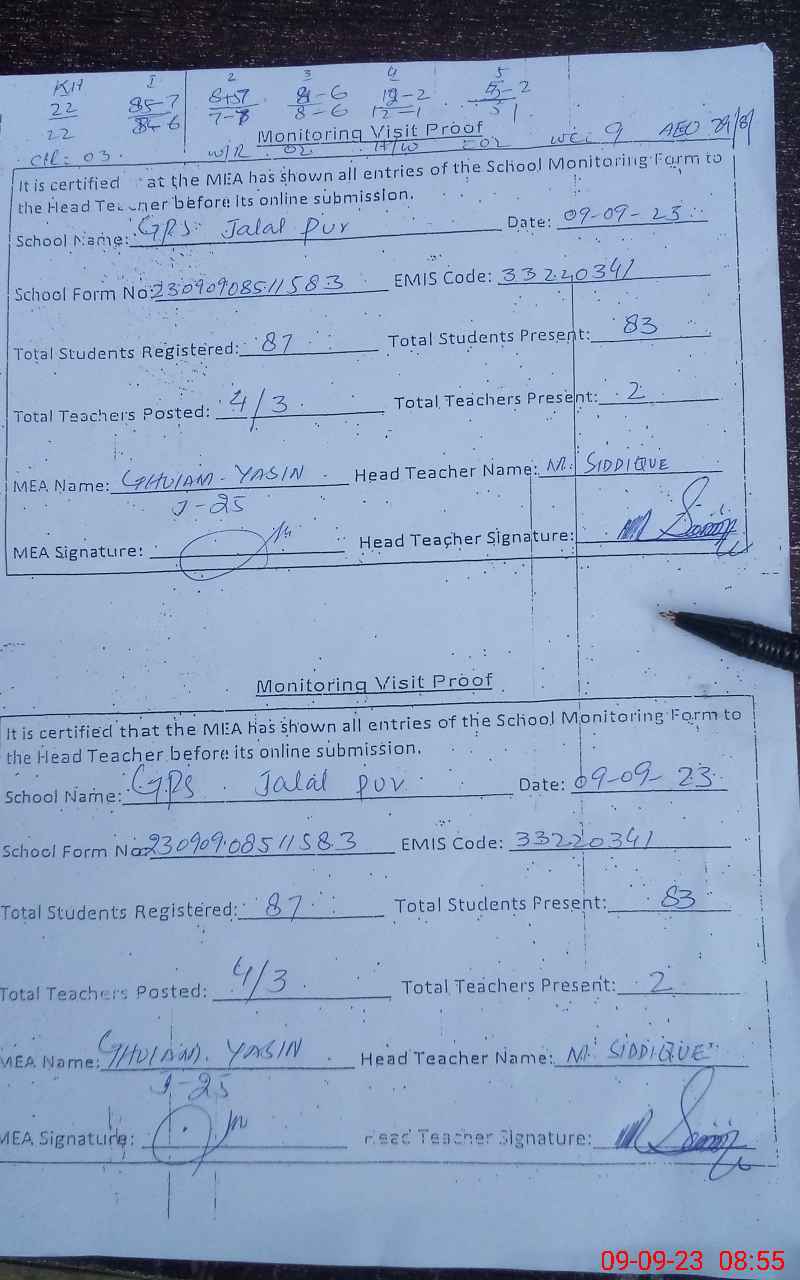 KH 1 2 3 4 5
22
22
Monitoring Visit Proof
It is certified at the MEA has shown all entries of the School Monitoring Form to
the Head Teacher before its online submission.
School Name: GPS Jalal Pur Date: 09-09-23
School Form No: 23090908511583 EMIS Code: 33220341
Total Students Registered: 87 Total Students Present: 83
Total Teachers Posted: 4/3 Total Teachers Present: 2
MEA Name: GHULAM. YASIN Head Teacher Name: M. SIDDIQUE
J-25
MEA Signature: Head Teacher Signature:
Monitoring Visit Proof
It is certified that the MEA has shown all entries of the School Monitoring Form to
the Head Teacher before its online submission.
School Name: GPS Jalal pur Date: 09-09-23
School Form No: 23090908511583 EMIS Code: 33220341
Total Students Registered: 87 Total Students Present: 83
Total Teachers Posted: 4/3 Total Teachers Present: 2
MEA Name: GHULAM. YASIN Head Teacher Name: M. SIDDIQUE
J-25
MEA Signature: Head Teacher Signature:
09-09-23 08:55